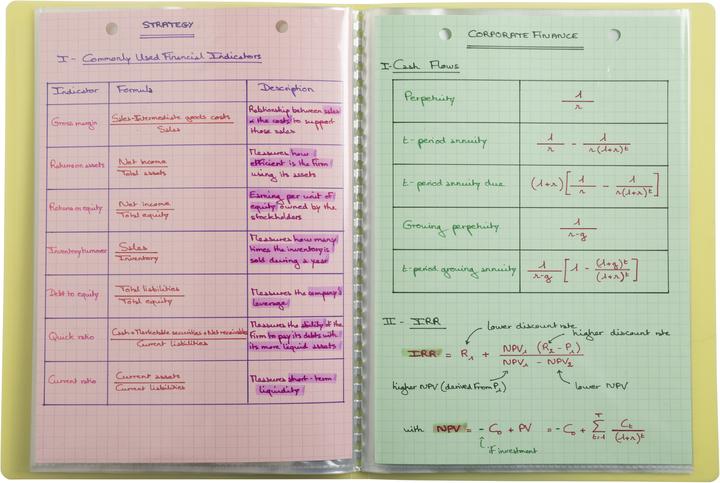 STRATEGY
I - Commonly Used Financial Indicators
Indicator Formula Description
Gross margin (Sales - Intermediate goods costs) / Sales Relationship between sales
& the costs to support
those sales
Return on assets Net income / Total assets Measures how
efficient is the firm
using its assets
Return on equity Net income / Total equity Earning per unit of
equity owned by the
stockholders
Inventory turnover Sales / Inventory Measures how many
times the inventory is
sold during a year
Debt to equity Total liabilities / Total equity Measures the company's
leverage
Quick ratio (Cash + Marketable securities + Net receivables) / Current liabilities Measures the ability of the
firm to pay its debts with
its more liquid assets
Current ratio Current assets / Current liabilities Measures short-term
liquidity
CORPORATE FINANCE
I - Cash Flows
Perpetuity 1 / r
t-period annuity 1 / r - 1 / r(1+r)^t
t-period annuity due (1+r) [1 / r - 1 / r(1+r)^t]
Growing perpetuity 1 / r-g
t-period growing annuity 1 / r-g [1 - (1+g)^t / (1+r)^t]
II - IRR
lower discount rate
higher discount rate
IRR = R₁ + NPV₁ (R₂ - P₁) / NPV₁ - NPV₂
higher NPV (derived from P₁) lower NPV
with NPV = - C₀ + PV = - C₀ + Σ T t=1 Cₜ / (1+r)^t
if investment